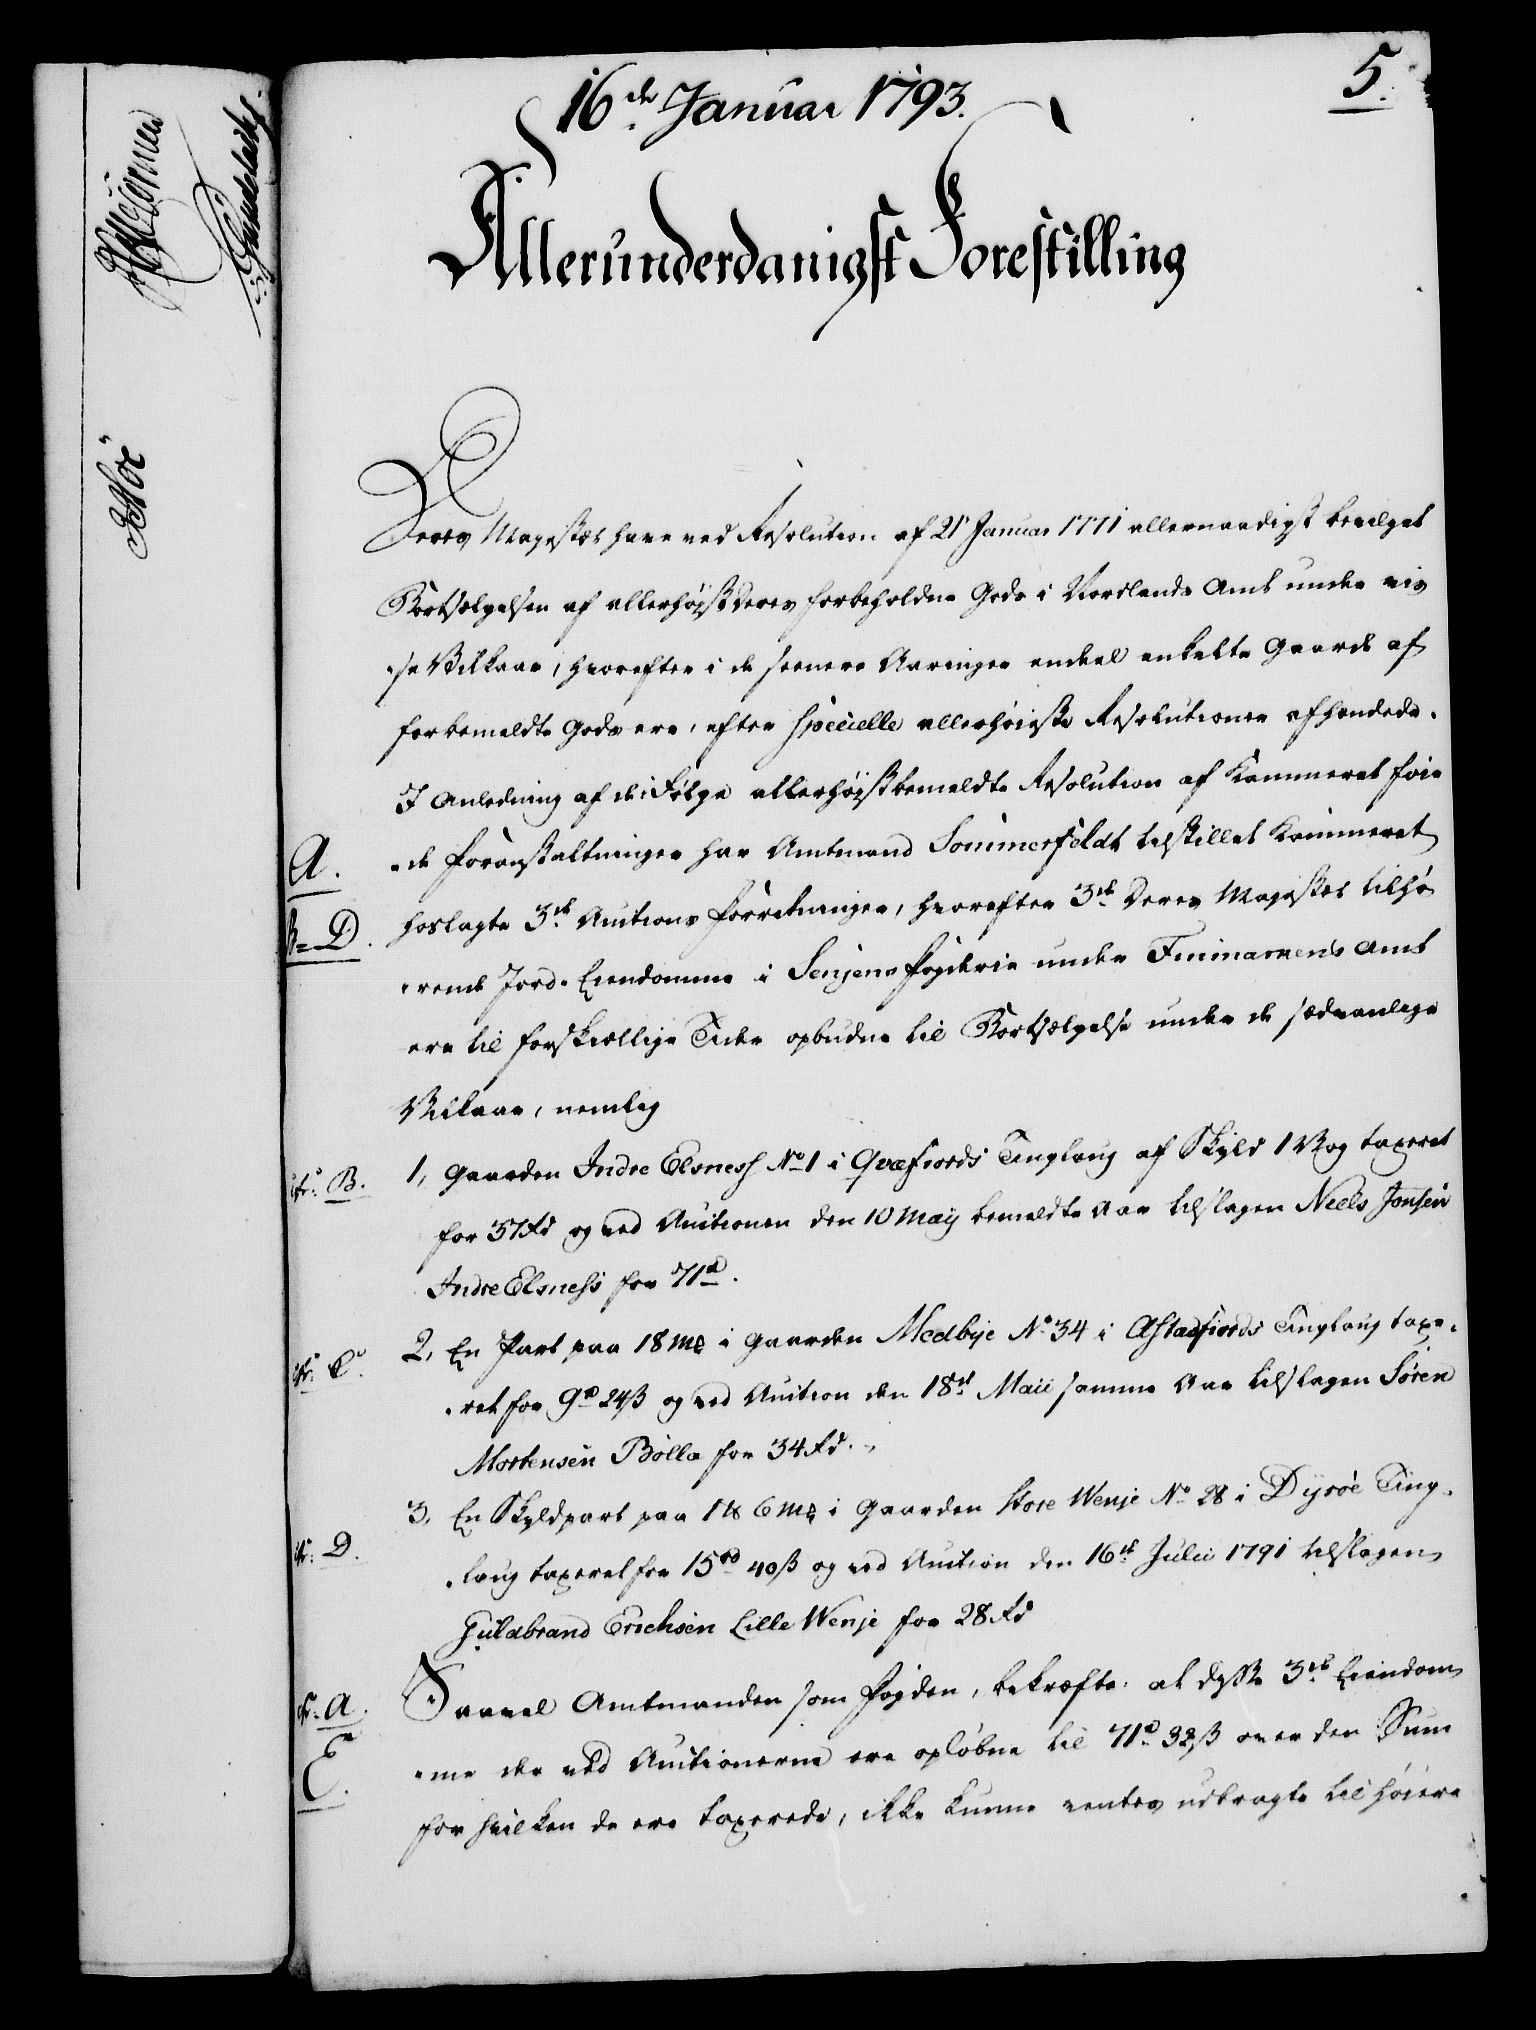 16de Januar 1793.
5.
Allerunderdanigst Forestilling
Deres Majestæt have ved Resolution af 21 Januar 1771 allernaadigst bevilget
Bortsælgelsen af allerhøjstDeres forbeholdne Gods i Nordlands Amt under vis
-se Vilkaar, hvorefter i de seenere Aaringer endeel enkelte Gaarde af
forbemeldte Gods ere, efter specielle allerhøieste Resolutioner afhændede.
I Anledning af de i Følge allerhøjstbemeldte Resolution af Kammeret føie
A.
-de Foranstaltninger har Amtmand Sommerfeldt tilstillet Kammeret
B=D.
hoslagte 3de Auctions Forretninger, hvorefter 3de Deres Majestæt tilhø
-rende Jord-Eiendomme i Senjens Fogderie under Finmarkens Amt
ere til forskiellige Tider opbudne til Bortsælgelse under de sædvanlige
Vilkaar, nemlig
B.
1, Gaarden Indre Elsness No 1 i Qvæfiords Tinglaug af Skyld 1 Vog taxeret
for 37 Rd og ved Auctionen den 10 Maij bemeldte Aar tilslagen Neels Jonsen
Indre Elsness for 71 rd.
C.
2, En Part paa 18 mk i Gaarden Medbye No 34 i Astafiords Tinglaug taxe-
-ret for 9 rd 24 ß og ved Auction den 18de Maii samme Aar tilslagen Sören
Mortensen Bölla for 34 Rd.
3, En Skyldpart paa 1 ℔ 6 mk i Gaarden Store Wenje No 28 i Dyröe Ting-
D.
-laug taxeret for 15 rd 40 ß og ved Auction den 16de Julii 1791 tilslagen
Guldbrand Erichsen Lille Wenje for 28 Rd
A.
Saavel Amtmanden som Fogden, bekræfte: at disse 3de Eiendom
E.
-me der ved Auctionerne ere opløbne til 71 rd 32 ß over den Sum
for hvilken de ere taxerede, ikke kunne ventes udbragte til høiere